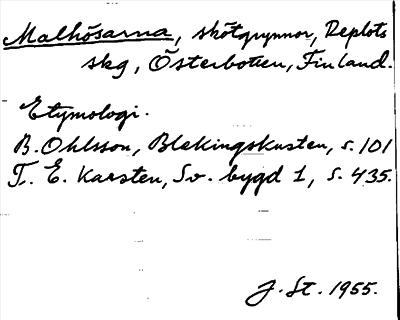 Malhösarna, skötgrynnor, Replots
skg, Österbotten, Finland.
Etymologi.
B. Ohlsson, Blekingskusten, s. 101
T. E. Karsten, Sv. bygd 1, s. 435.
J. St. 1955.